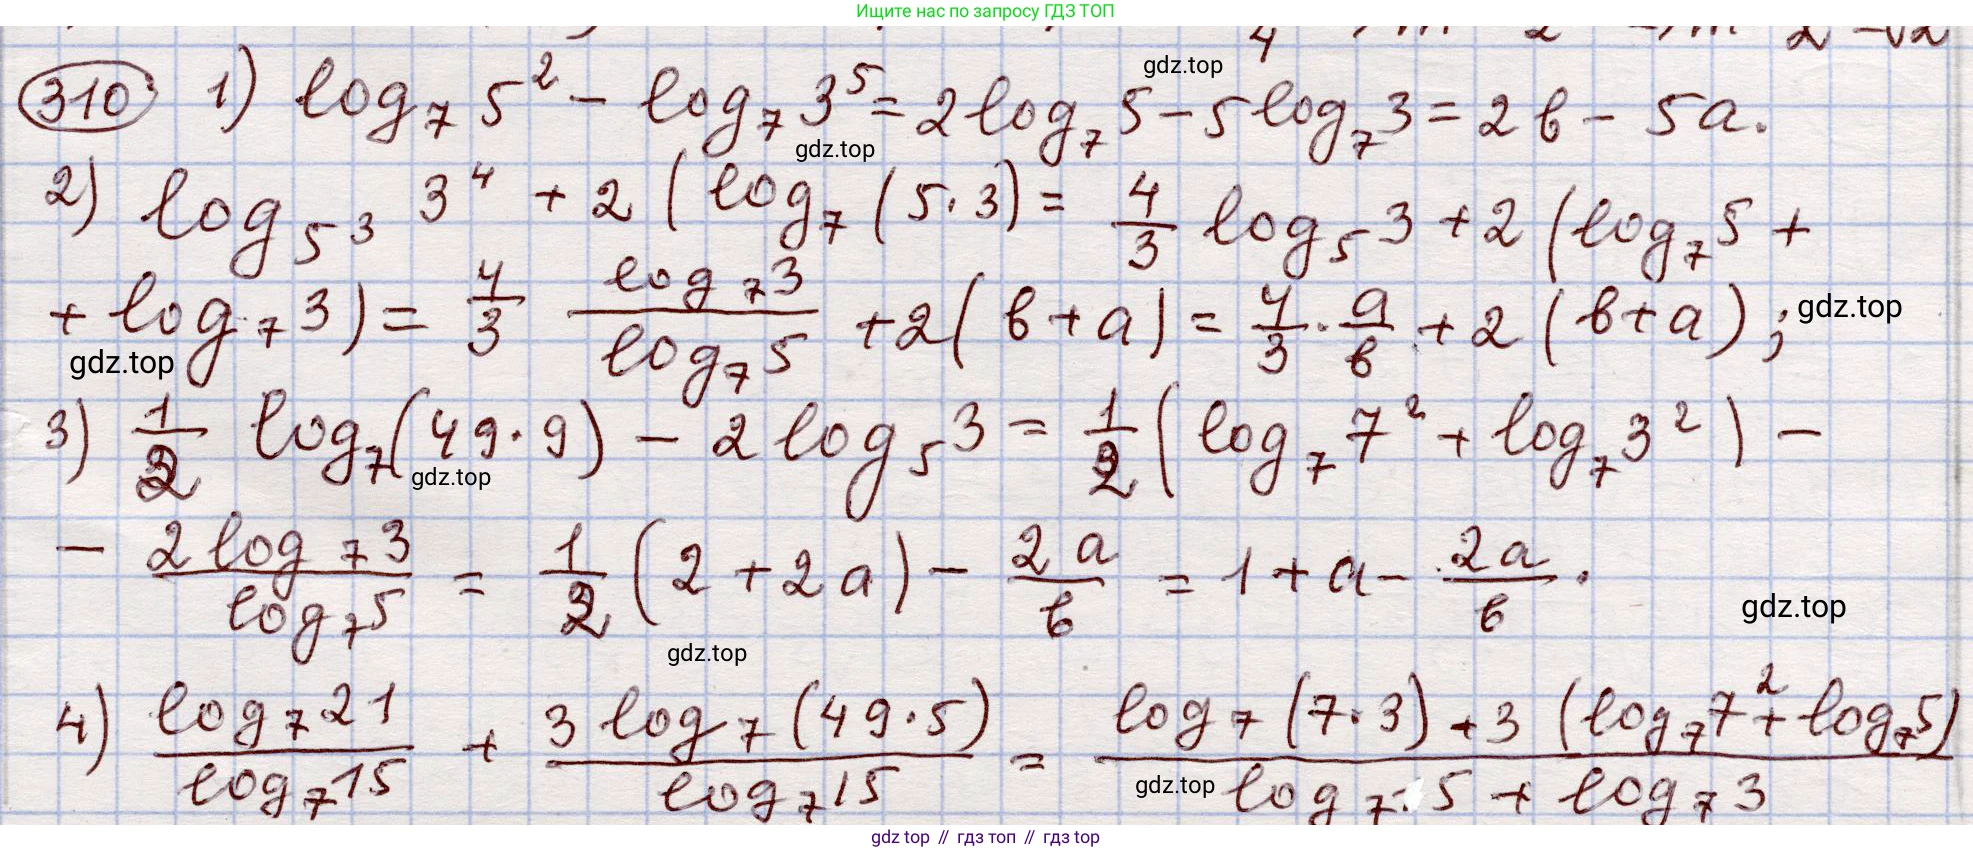 Ищите нас по запросу ГДЗ ТОП
310 1) log₇ 5² − log₇ 3⁵ = 2 log₇ 5 − 5 log₇ 3 = 2в − 5a.
gdz.top
gdz.top
2) log_{5³} 3⁴ + 2 (log₇ (5·3) = 4/3 log₅ 3 + 2 (log₇ 5 +
+ log₇ 3) = 4/3 log₇ 3 / log₇ 5 + 2 (в + a) = 4/3 · a/в + 2 (в + a);
gdz.top
gdz.top
3) 1/2 log₇ (49·9) − 2 log₅ 3 = 1/2 (log₇ 7² + log₇ 3²) −
gdz.top
− 2 log₇ 3 / log₇ 5 = 1/2 (2 + 2a) − 2a/в = 1 + a − 2a/в.
gdz.top
gdz.top
4) log₇ 21 / log₇ 15 + 3 log₇ (49·5) / log₇ 15 = log₇ (7·3) + 3 (log₇ 7² + log₇ 5) / log₇ 5 + log₇ 3
gdz.top
gdz top // гдз топ // гдз top